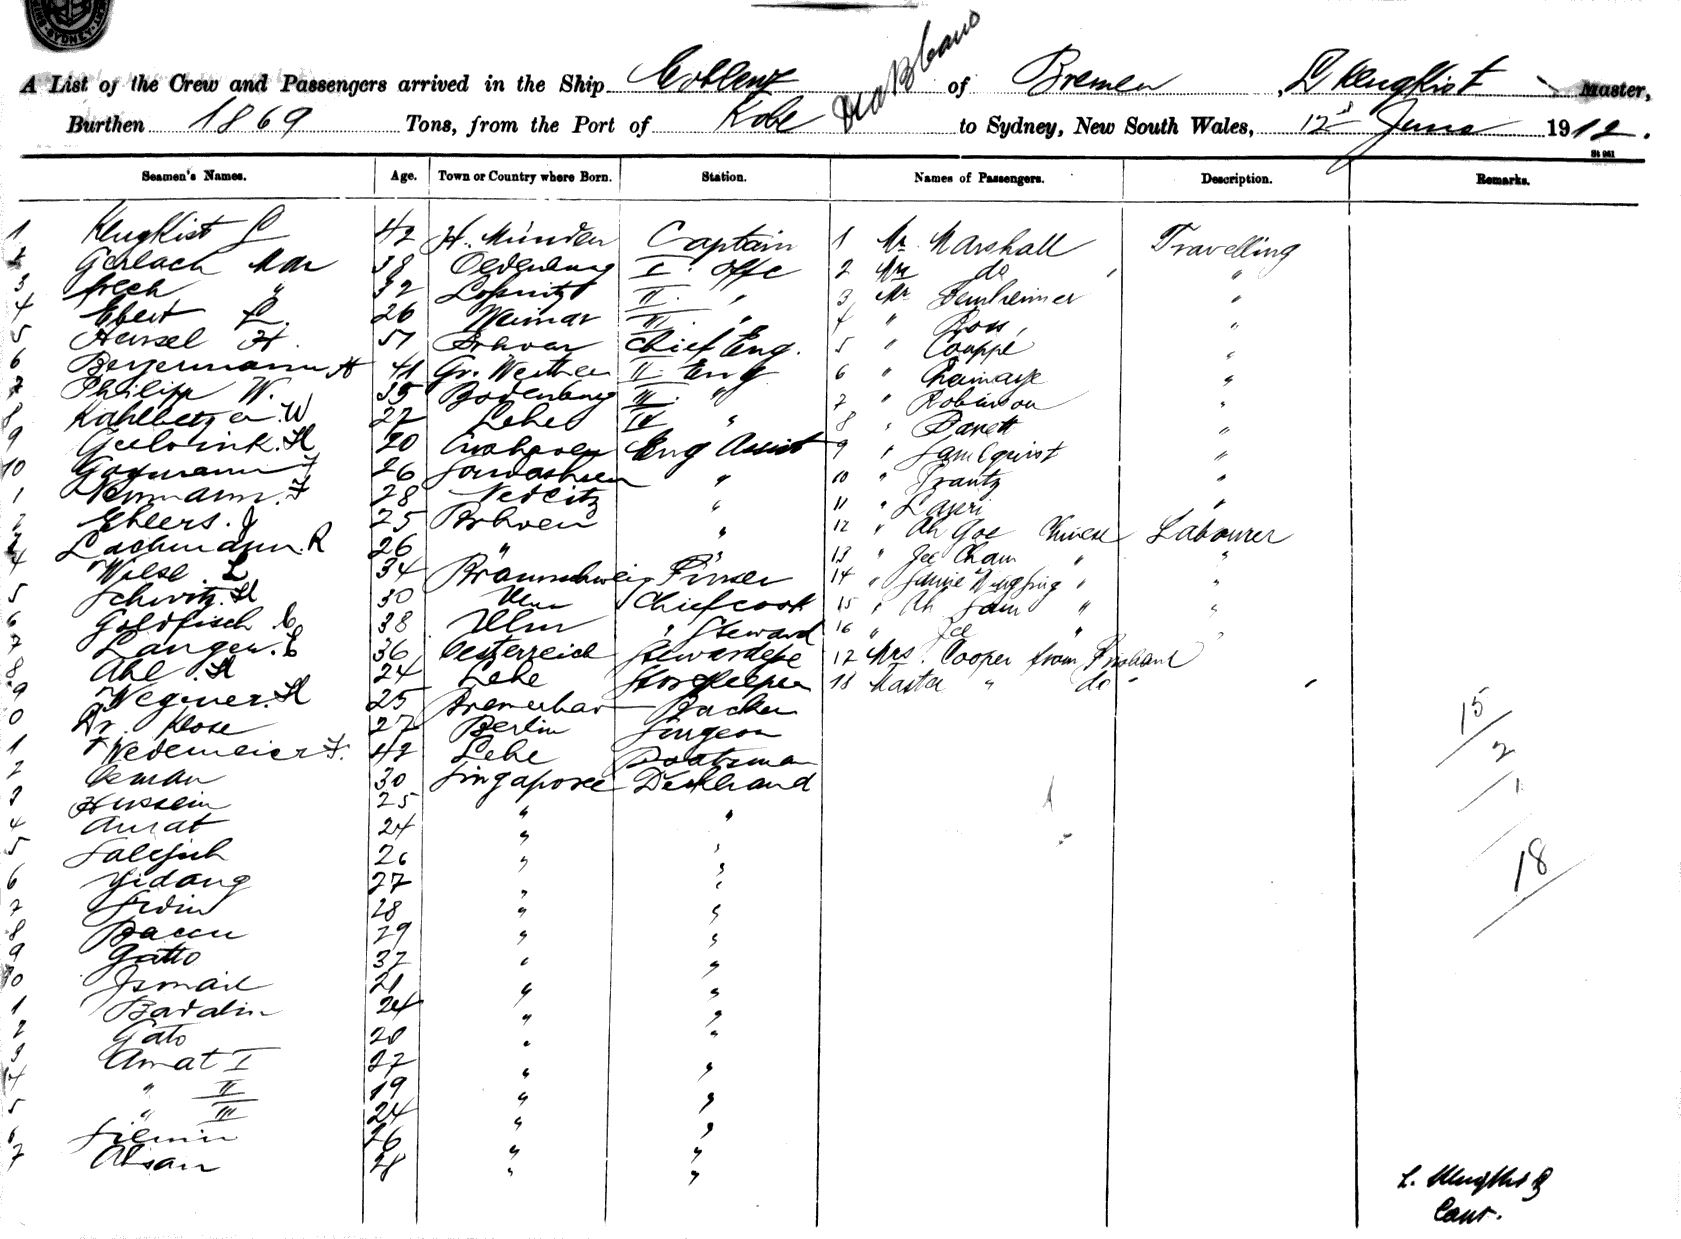 SYDNEY
A List of the Crew and Passengers arrived in the Ship Coblenz of Bremen, L Klugkist Master,
Burthen 1869 Tons, from the Port of Kobe to Sydney, New South Wales, 12 June 1912.
Seamen's Names. Age. Town or Country where Born. Station. Names of Passengers. Description. Remarks.
1 Klugkist L 42 H. Münden Captain 1 Mr. Marshall Travelling
2 Gerlach Max 38 Oldenburg I. offc 2 Mrs do "
3 " 32 II. " 3 Mr "
4 Ebert L. 26 Weimar III. " 4 " Ross, "
5 Hensel H. 51 Chief Eng. 5 " Couppé "
6 Bergermann A 41 Gr. Werther II. Eng 6 " "
7 Philipp W. 35 Bodenburg III. " 7 " Robinson "
8 Kahlbetzer W 22 Lehe IV " 8 " Barrett "
9 H 20 Cuxhaven Eng Assist 9 " "
10 26 " 10 " Frantz "
1 Neumann. F 28 " 11 " "
2 Ehlers. J 25 Brhven " 12 " Ah Goe Chinese Labourer
3 Lachmann. R 26 " " 13 " Jee Cham " "
4 Wiese. L 34 Braunschweig 14 " " "
5 H 30 Ulm Chief cook 15 " Ah Sam " "
6 Goldfisch C 38 Ulm " Steward 16 " Jee " "
7 Langer. E 36 Oesterreich 17 Mrs. Cooper from Brisbane
8 Ahl. H 24 Lehe Storekeeper 18 Master " do "
9 Wegener. H 25 Bremerhav Backer
0 Dr. Klose 27 Berlin Surgeon
1 Wedemeier F. 42 Lehe Boatsman
2 Osman 30 Singapore Deckhand
3 Hussein 25 " "
4 Amat 24 " "
5 26 " "
6 Yidang 27 " "
7 28 " "
8 29 " "
9 Gatto 32 " "
0 Ismail 21 " "
1 Badalin 24 " "
2 Gato 20 " "
3 Amat I 27 " "
4 " II 19 " "
5 " III 24 " "
6 26 " "
7 Ahsan 28 " "
15
2
1
18
L. Klugkist
Capt.